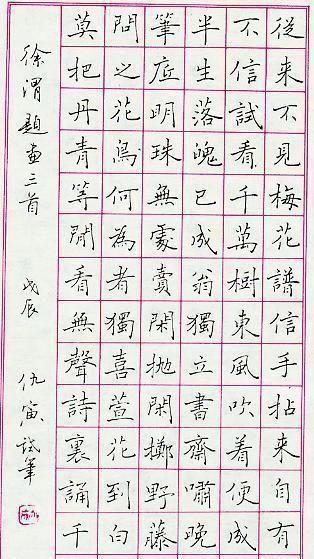 從来不見梅花譜信手拈来自有
不信試看千萬樹東風吹着便成
半生落魄已成翁獨立書齋嘯晚
筆底明珠無處賣閑抛閑擲野藤
問之花鳥何為者獨喜萱花到白
莫把丹青等閒看無聲詩裏誦千
徐渭題畫三首 戊辰 仇寅試筆